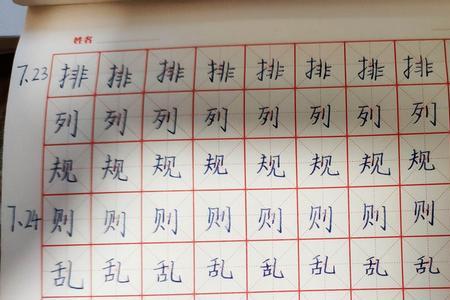 姓名
7.23 排 排 排 排 排 排 排 排
列 列 列 列 列 列 列 列
规 规 规 规 规 规 规 规
7.24 则 则 则 则 则 则 则 则
乱 乱 乱 乱 乱 乱 乱 乱